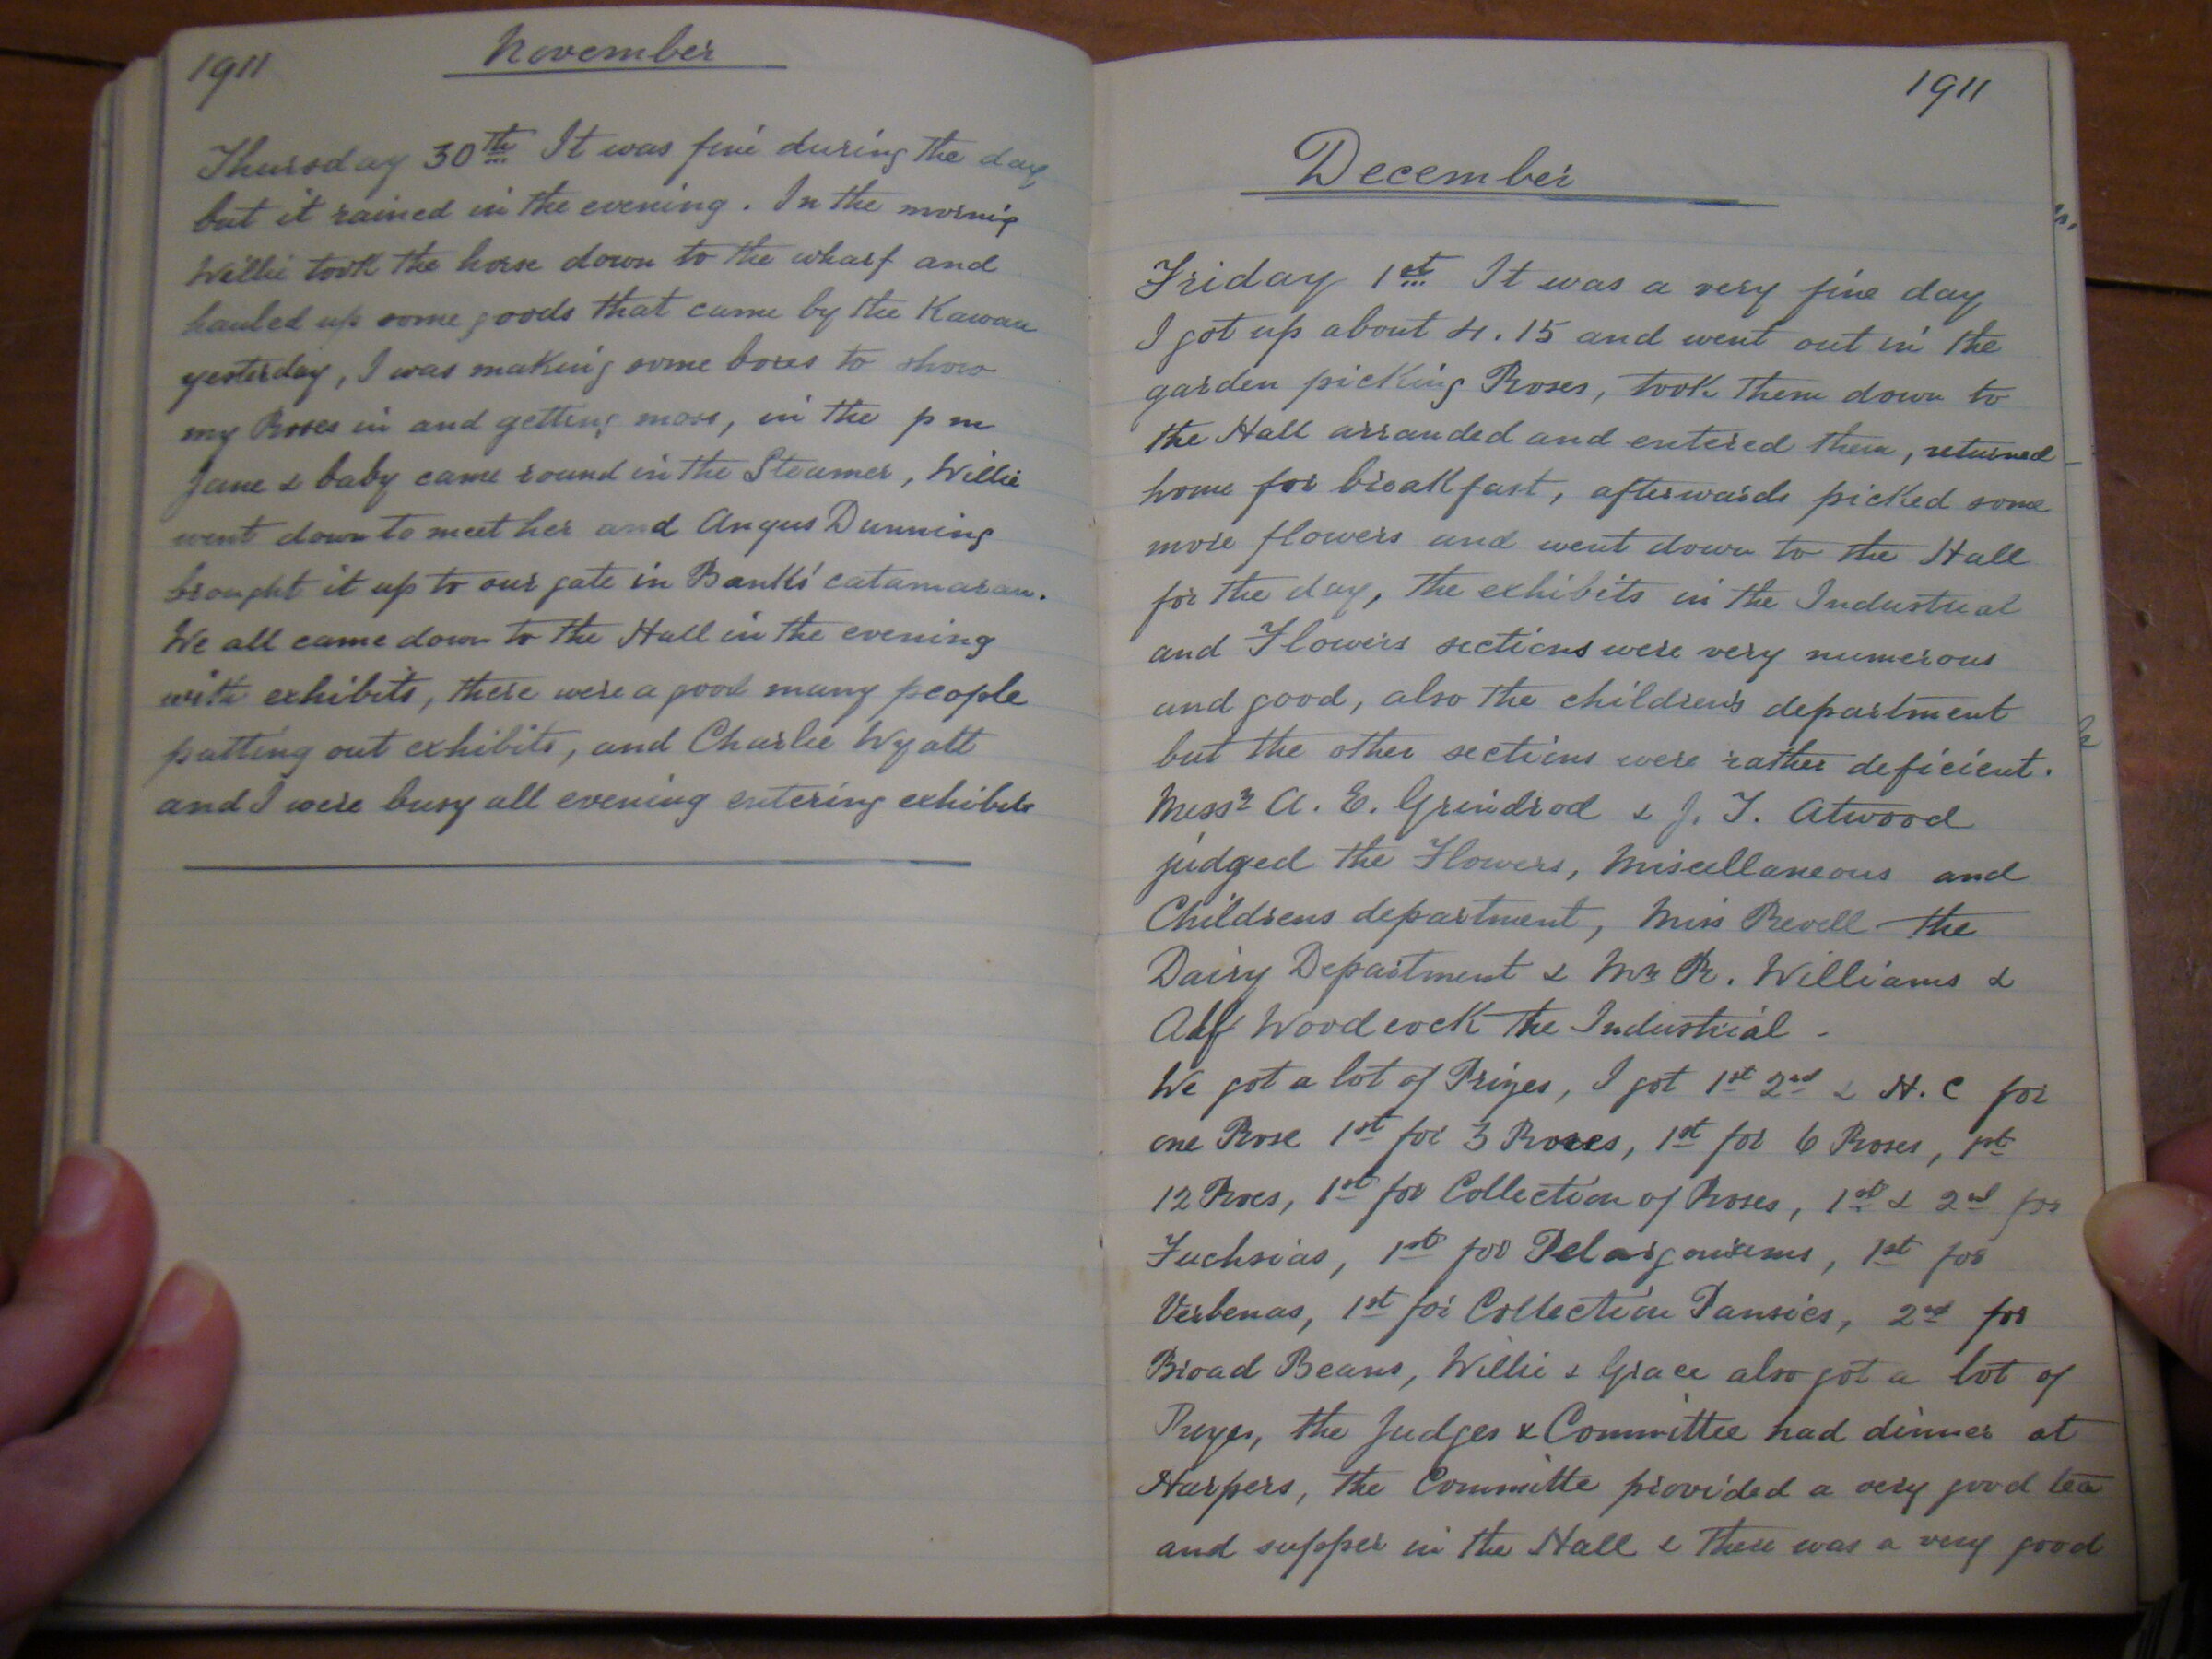 1911
November
Thursday 30th It was fine during the day
but it rained in the evening. In the mornig
Willie took the horse down to the wharf and
hauled up some goods that came by the Kawau
yesterday, I was making some boxes to show
my Roses in and getting moss, in the p m
Jane & baby came round in the Steamer, Willie
went down to meet her and Angus Dunning
brought it up to our gate in Banks' catamaran.
We all came down to the Hall in the evening
with exhibits, there were a good many people
putting out exhibits, and Charlie Wyatt
and I were busy all evening entering exhibits
1911
December
Friday 1st It was a very fine day
I got up about 4.15 and went out in the
garden picking Roses, took them down to
the Hall arranded and entered them, returned
home for breakfast, afterwards picked some
more flowers and went down to the Hall
for the day, the exhibits in the Industrial
and Flowers sections were very numerous
and good, also the children's department
but the other sections were rather deficient.
Messrs A. E. Grindrod & J. T. Atwood
judged the Flowers, Miscellaneous and
Childrens department, Miss Revell the
Dairy Department & Mr R. Williams &
Alf Woodcock the Industrial -
We got a lot of Prizes, I got 1st 2nd & H. C for
one Rose 1st for 3 Roses, 1st for 6 Roses, 1st
12 Roes, 1st for Collection of Roses, 1st & 2nd for
Fuchsias, 1st for Pelargoniums, 1st for
Verbenas, 1st for Collection Pansies, 2nd for
Broad Beans, Willie & Grace also got a lot of
Prizes, the Judges & Committee had dinner at
Harpers, the Committe provided a very good tea
and supper in the Hall & there was a very good